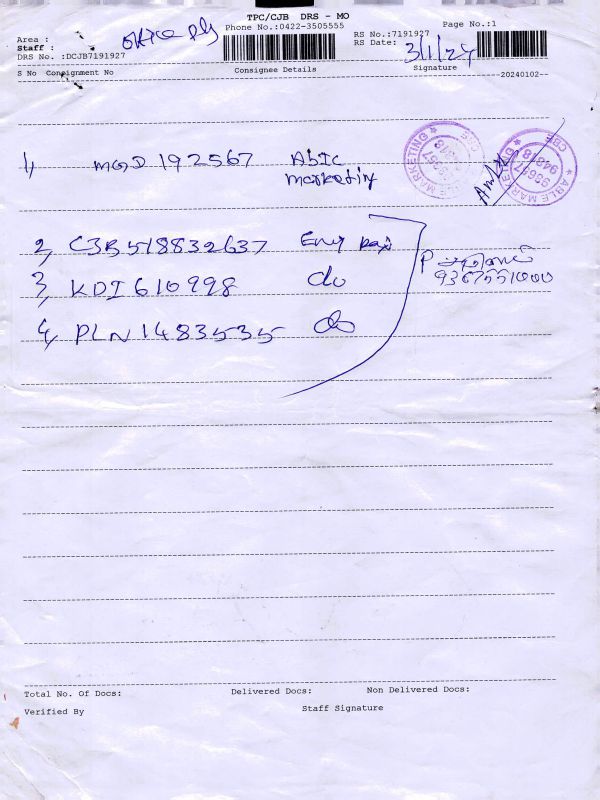 TPC/CJB DRS - MO
Phone No.:0422-3505555
Page No.:1
Area :
Staff :
DRS No. :DCJB7191927
RS No.:7191927
RS Date: 3/1/24
S No Consignment No Consignee Details Signature --20240102--
1, MGD 192567 Able
Marketing
2, CJB518832637
3, KDI 610998 do
4, PLN 1483535 do
Total No. Of Docs: Delivered Docs: Non Delivered Docs:
Verified By Staff Signature